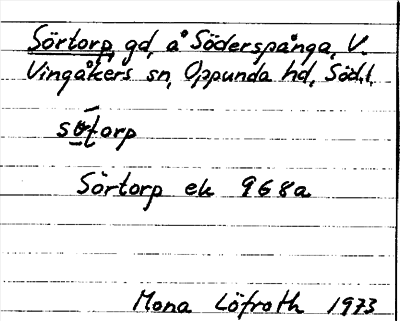 Sörtorp, gd, å Söderspånga, V.
Vingåkers sn, Oppunda hd, Södl.
Sörtorp ek 968a
Mona Löfroth 1973